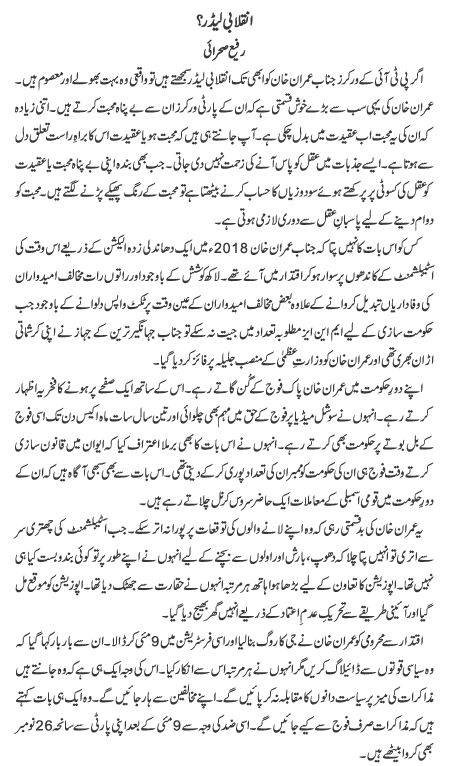 انقلابی لیڈر؟
رفیع صحرائی
اگر پی ٹی آئی کے ورکرز جناب عمران خان کو ابھی تک انقلابی لیڈر سمجھتے ہیں تو واقعی وہ بہت بھولے اور معصوم ہیں۔
عمران خان کی یہی سب سے بڑے خوش قسمتی ہے کہ ان کے پارٹی ورکرز ان سے بے پناہ محبت کرتے ہیں۔ اتنی زیادہ
کہ ان کی یہ محبت اب عقیدت میں بدل چکی ہے۔ آپ جانتے ہی ہیں کہ محبت ہو یا عقیدت اس کا براہِ راست تعلق دل
سے ہوتا ہے۔ ایسے جذبات میں عقل کو پاس آنے کی زحمت نہیں دی جاتی۔ جب بھی بندہ اپنی بے پناہ محبت یا عقیدت
کو عقل کی کسوٹی پر پرکھتے ہوئے سود و زیاں کا حساب کرنے بیٹھتا ہے تو محبت کے رنگ پھیکے پڑنے لگتے ہیں۔ محبت کو
دوام دینے کے لیے پاسبانِ عقل سے دوری لازمی ہوتی ہے۔
کس کو اس بات کا نہیں پتا کہ جناب عمران خان 2018ء میں ایک دھاندلی زدہ الیکشن کے ذریعے اس وقت کی
اسٹیبلشمنٹ کے کاندھوں پر سوار ہو کر اقتدار میں آئے تھے۔ لاکھ کوشش کے باوجود اور راتوں رات مخالف امیدواران
کی وفاداریاں تبدیل کروانے کے علاوہ بعض مخالف امیدواران کے عین وقت پر ٹکٹ واپس دلوانے کے باوجود جب
حکومت سازی کے لیے ایم این ایز مطلوبہ تعداد میں جیت نہ سکے تو جناب جہانگیر ترین کے جہاز نے اپنی کرشماتی
اڑان بھری تھی اور عمران خان کو وزارتِ عظمٰی کے منصب جلیلہ پر فائز کر دیا گیا۔
اپنے دورِ حکومت میں عمران خان پاک فوج کے گُن گاتے رہے۔ اس کے ساتھ ایک صفحے پر ہونے کا فخریہ اظہار
کرتے رہے۔ انہوں نے سوشل میڈیا پر فوج کے حق میں مہم بھی چلوائی اور تین سال سات ماہ اکیس دن تک اسی فوج
کے بل بوتے پر حکومت بھی کرتے رہے۔ انہوں نے اس بات کا بھی برملا اعتراف کیا کہ ایوان میں قانون سازی
کرتے وقت فوج ہی ان کی حکومت کو ممبران کی تعداد پوری کر کے دیتی تھی۔ اس بات سے بھی سبھی آگاہ ہیں کہ ان کے
دورِ حکومت میں قومی اسمبلی کے معاملات ایک حاضر سروس کرنل چلاتے رہے ہیں۔
یہ عمران خان کی بدقسمتی رہی کہ وہ اپنے لانے والوں کی توقعات پر پورا نہ اتر سکے۔ جب اسٹیبلشمنٹ کی چھتری سر
سے اتری تو انہیں پتا چلا کہ دھوپ، بارش اور اولوں سے بچنے کے لیے انہوں نے اپنے طور پر تو کوئی بندوبست کیا ہی
نہیں تھا۔ اپوزیشن کا تعاون کے لیے بڑھا ہوا ہاتھ ہر مرتبہ انہوں نے حقارت سے جھٹک دیا تھا۔ اپوزیشن کو موقع مل
گیا اور آئینی طریقے سے تحریک عدمِ اعتماد کے ذریعے انہیں گھر بھیج دیا گیا۔
اقتدار سے محرومی کو عمران خان نے جی کا روگ بنا لیا اور اسی فرسٹریشن میں 9 مئی کر ڈالا۔ ان سے بار بار کہا گیا کہ
وہ سیاسی قوتوں سے ڈائیلاگ کریں مگر انہوں نے ہر مرتبہ اس سے انکار کیا۔ اس کی وجہ ایک ہی ہے کہ وہ جانتے ہیں
مذاکرات کی میز پر سیاست دانوں کا مقابلہ نہ کر پائیں گے۔ اپنے مخالفین سے ہار جائیں گے۔ وہ ایک ہی بات کہتے
ہیں کہ مذاکرات صرف فوج سے کیے جائیں گے۔ اسی ضد کی وجہ سے 9 مئی کے بعد اپنی پارٹی سے سانحہ 26 نومبر
بھی کروا بیٹھے ہیں۔